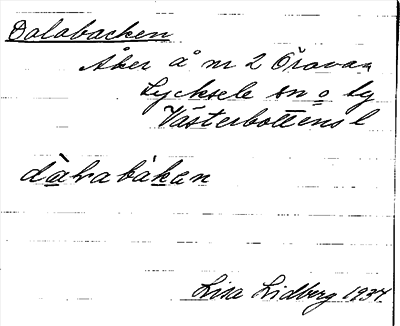 Dalabacken
Åker å nr 2 Öravan
Lycksele sn o by
Västerbottens l
dàlrabàkan
Lisa Lidberg 1934